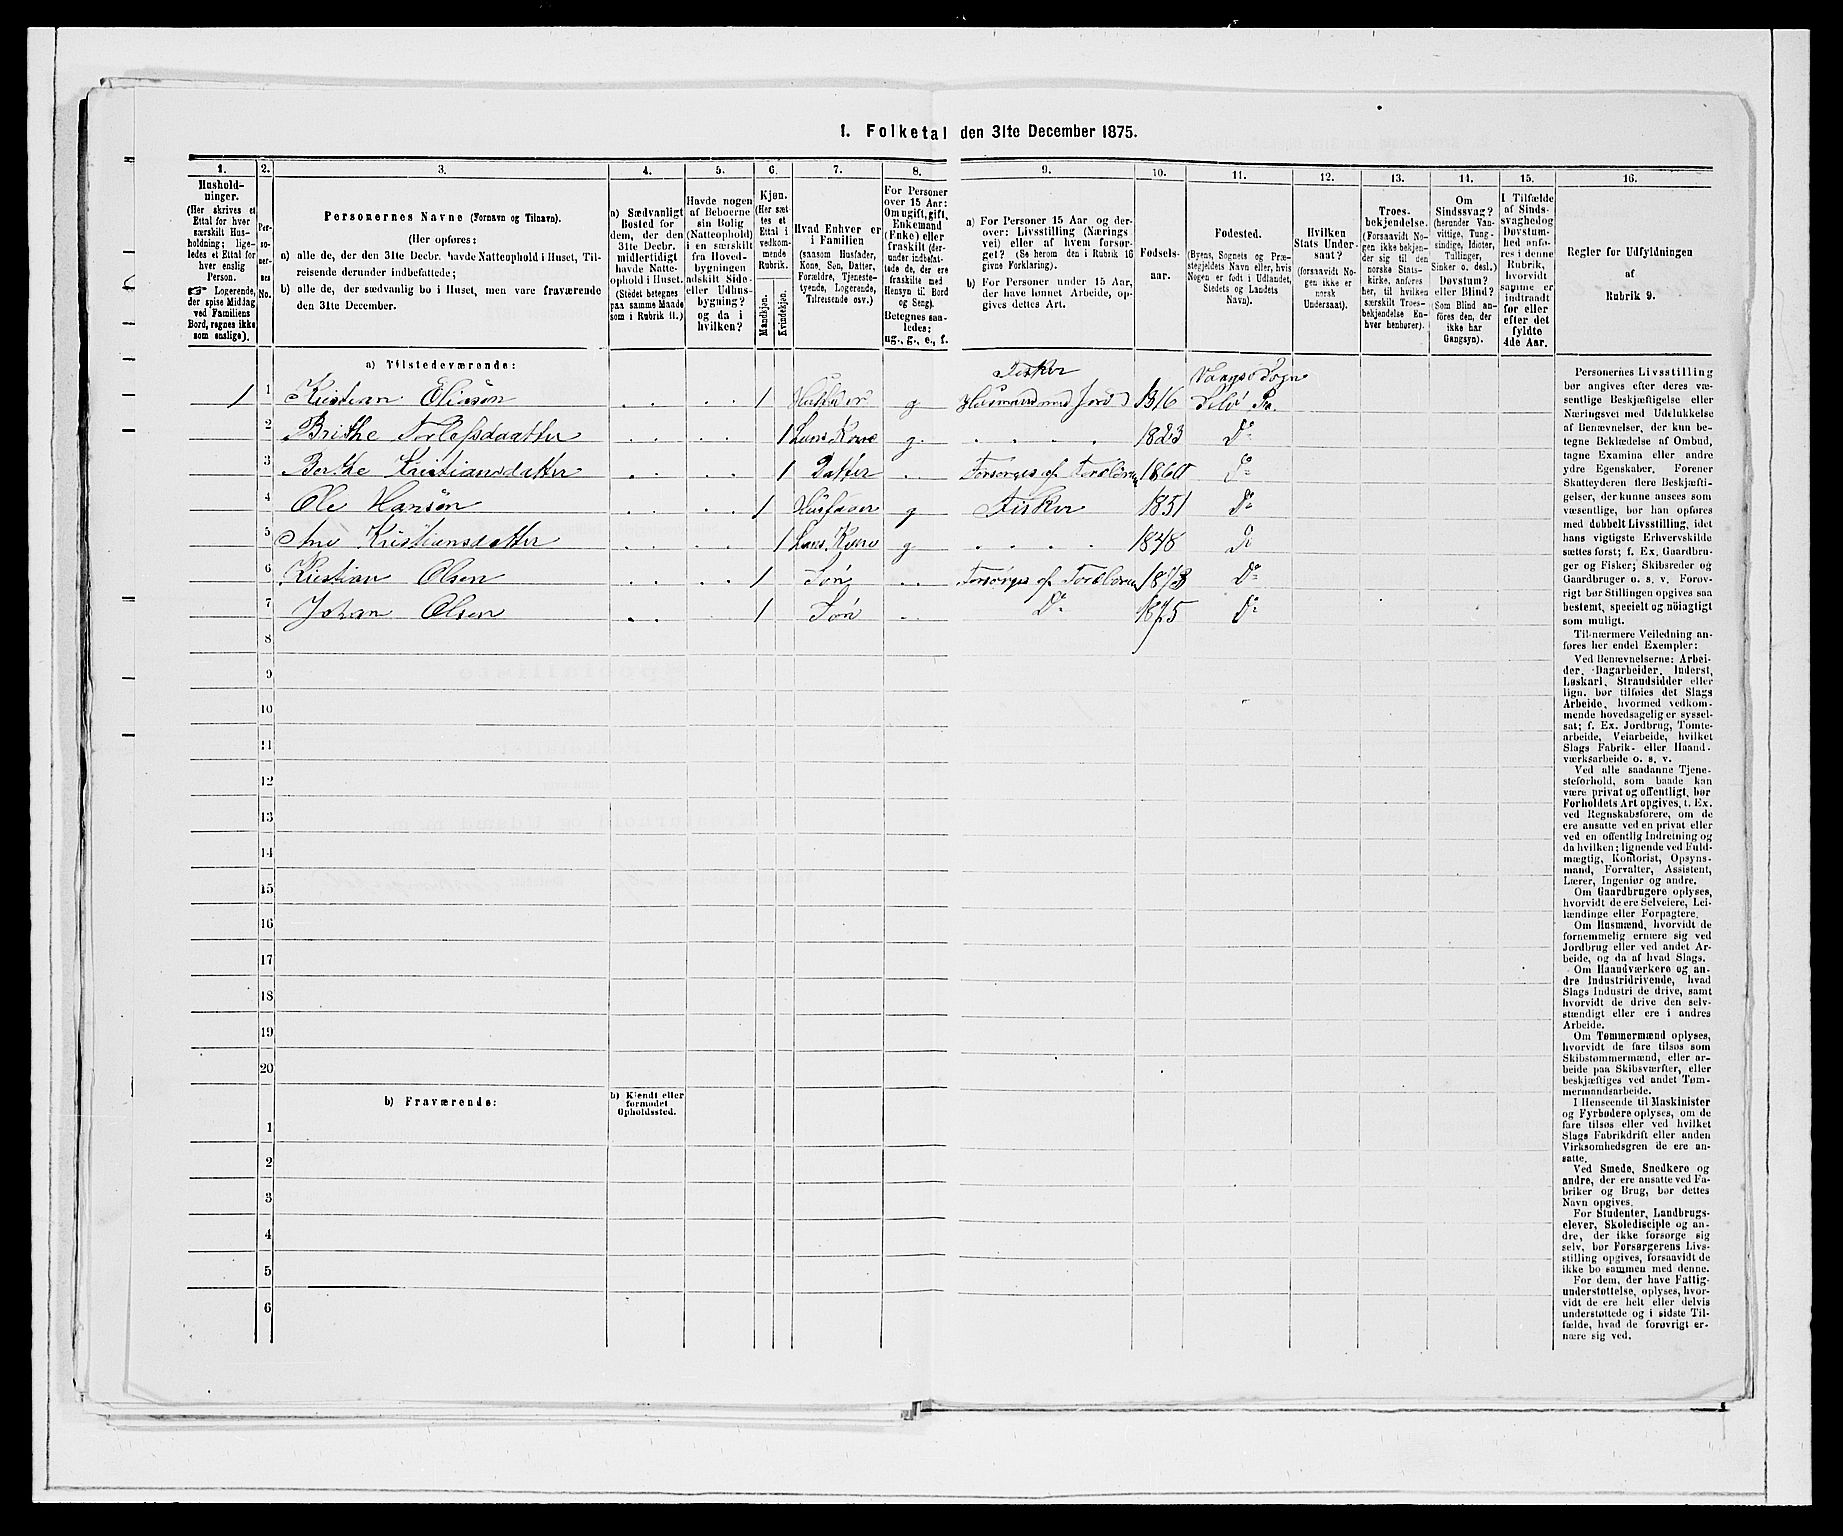 1. Folketal den 31te December 1875.
1.
Hushold-
ninger.
(Her skrives et
Ettal for hver
særskilt Hus-
holdning; lige-
ledes et Ettal for
hver enslig
Person.
☞ Logerende,
der spise Middag
ved Familiens
Bord, regnes ikke
som enslige).
2.
Per-
so-
ner-
nes
No.
3.
Personernes Navne (Fornavn og Tilnavn).
(Her opføres:
a) alle de, der den 31te Decbr. havde Natteophold i Huset, Til-
reisende derunder indbefattede;
b) alle de, der sædvanlig bo i Huset, men vare fraværende
den 31te December.
4.
a) Sædvanligt
Bosted for
dem, der den
31te Decbr.
midlertidigt
havde Natte-
ophold i Huset.
(Stedet betegnes
paa samme Maade
som i Rubrik 11.)
5.
Havde nogen
af Beboerne
sin Bolig
(Natteophold)
i en særskilt
fra Hoved-
bygningen
adskilt Side-
eller Udhus-
bygning?
og da i
hvilken?
6.
Kjøn.
(Her sæt-
tes et
Ettal i
vedkom-
mende
Rubrik.
Mandkjøn.
Kvindekjøn.
7.
Hvad Enhver er
i Familien
(saasom Husfader,
Kone, Søn, Datter,
Forældre, Tjeneste-
tyende, Logerende,
Tilreisende osv.)
8.
For Personer
over 15 Aar:
Om ugift, gift,
Enkemand
(Enke) eller
fraskilt (der-
under indbefat-
tede de, der ere
fraskilte med
Hensyn til Bord
og Seng).
Betegnes saa-
ledes:
ug., g., e., f.
9.
a) For Personer 15 Aar og der-
over: Livsstilling (Nærings
vei) eller af hvem forsør-
get? (Se herom den i Rubrik 16
givne Forklaring).
b) For Personer under 15 Aar,
der have lønnet Arbeide, op-
gives dettes Art.
10.
Fødsels-
aar.
11.
Fødested.
(Byens, Sognets og Præ-
stegjeldets Navn eller, hvis
Nogen er født i Udlandet,
Stedets og Landets
Navn).
12.
Hvilken
Stats Under-
saat?
(forsaavidt No-
gen ikke er
norsk
Undersaat).
13.
Troes-
bekjendelse.
(Forsaavidt No-
gen ikke bekjen-
der sig til den
norske Stats-
kirke, anføres
her, til hvilken
særskilt Troes-
bekjendelse En-
hver henhører).
14.
Om
Sindssvag?
(herunder Van-
vittige, Tung-
sindige, Idioter,
Tullinger,
Sinker o. desl.)
Døvstum?
eller Blind?
(Som Blind an-
føres den, der
ikke har
Gangsyn).
15.
I Tilfælde
af Sinds-
svaghed og
Døvstum-
hed anfø-
res i denne
Rubrik,
hvorvidt
samme er
indtraadt
før eller
efter det
fyldte
4de Aar.
16.
Regler for Udfyldningen
af
Rubrik 9.
a) Tilstedeværende:
1 1 Kristian Eliasön . . . . 1 Husfader g Fisker Husmand med Jord 1816 Sogn Selö Pr.
2 Brithe . . . . 1 Hans Kone g . . . . 1823 Do
3 Berthe Kristiansdatter . . . . 1 Datter . . Forsørges af Forældrene 1860 Do
4 Ole Hansön . . . . 1 Husfader g Fisker 1851 Do
5 Ane Kristiansdatter . . . . 1 Hans Kone g . . . . 1848 Do
6 Kristian Olsen . . . . 1 Søn . . Forsørges af Forældrene 1873 Do
7 Johan Olsen . . 1 Søn . . Do 1875 Do
8
9
10
11
12
13
14
15
16
17
18
19
20
b) Fraværende:
b) Kjendt eller
formodet
Opholdssted.
1
2
3
4
5
6
Personernes Livsstilling
bør angives efter deres væ-
sentlige Beskjæftigelse eller
Næringsvei med Udelukkelse
af Benævnelser, der kun be-
tegne Beklædelse af Ombud,
tagne Examina eller andre
ydre Egenskaber. Forener
Skatteyderen flere Beskjæfti-
gelser, der kunne ansees som
væsentlige, bør han opføres
med dobbelt Livsstilling, idet
hans vigtigste Erhvervskilde
sættes først; f. Ex. Gaardbru-
ger og Fisker; Skibsreder og
Gaardbruger o. s. v. Forøv-
rigt bør Stillingen opgives saa
bestemt, specielt og nöiagtigt
som muligt.
Til nærmere Veiledning an-
føres her endel Exempler:
Ved Benævnelserne: Arbei-
der, Dagarbeider, Inderst,
Løskarl, Strandsidder eller
lign. bør tilføies det Slags
Arbeide, hvormed vedkom-
mende hovedsagelig er syssel-
sat; f. Ex. Jordbrug, Tomte-
arbeide, Veiarbeide, hvilket
Slags Fabrik- eller Haand-
værksarbeide o. s. v.
Ved alle saadanne Tjene-
steforhold, som baade kan
være privat og offentligt, bør
Forholdets Art opgives, t. Ex.
ved Regnskabsførere, om de
ere ansatte ved en privat eller
ved en offentlig Indretning og
da hvilken; lignende ved Fuld-
mægtig, Kontorist, Opsyns-
mand, Forvalter, Assistent,
Lærer, Ingeniør og andre.
Om Gaardbrugere oplyses,
hvorvidt de ere Selveiere, Lei-
lændinge eller Forpagtere.
Om Husmænd, hvorvidt de
fornemmelig ernære sig ved
Jordbrug eller ved andet Ar-
beide, og da af hvad Slags.
Om Haandværkere og an-
dre Industridrivende, hvad
Slags Industri de drive, samt
hvorvidt de drive den selv-
stændigt eller ere i andres
Arbeide.
Om Tømmermænd oplyses,
hvorvidt de fare tilsøs som
Skibstømmermænd, eller ar-
beide paa Skibsværfter, eller
beskjæftiges ved andet Tøm-
mermandsarbeide.
I Henseende til Maskinister
og Fyrbødere oplyses, om de
fare tilsøs eller ved hvilket
Slags Fabrikdrift eller anden
Virksomhedsgren de ere an-
satte.
Ved Smede, Snedkere og
andre, der ere ansatte ved Fa-
briker og Brug, bør dettes
Navn opgives.
For Studenter, Landbrugs-
elever, Skoledisciple og an-
dre, der ikke forsørge sig
selv, bør Forsørgerens Livs-
stilling opgives, forsaavidt de
ikke bo sammen med denne.
For dem, der have Fattig-
understøttelse, oplyses, hvor-
vidt de ere helt eller delvis
understøttede og i sidste Til-
fælde, hvad de forøvrigt er-
nære sig ved.